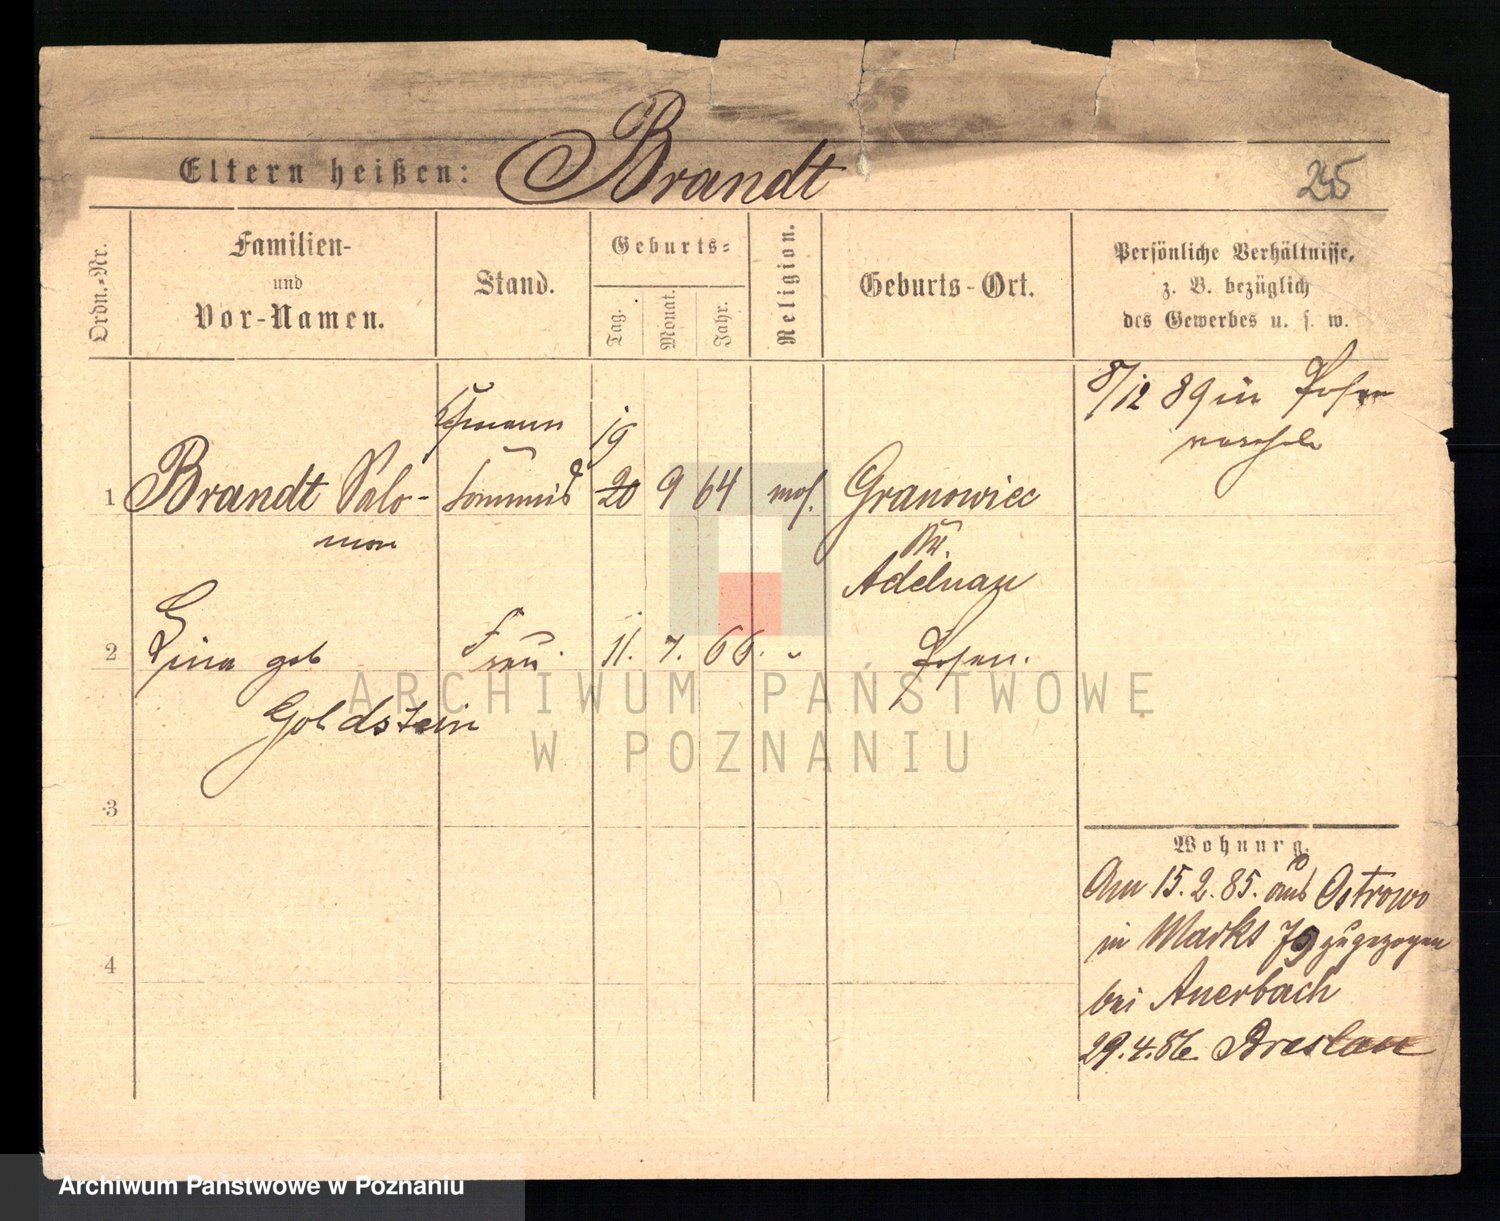 Eltern heißen: Brandt
295
Ordn.-Nr.
Familien-
und
Vor-Namen.
Stand.
Geburts-
Tag.
Monat.
Jahr.
Religion.
Geburts-Ort.
Persönliche Verhältnisse,
z. B. bezüglich
des Gewerbes u. s. w.
8/12 89 in Posen
Kfmann
19
1 Brandt Salo- Commis 20 9 64 mos. Granowiec
mon
Kr.
Adelnau
2 Lina geb Frau. 11. 7. 66. " Posen.
Goldstein
3
Wohnung.
Am 15.2.85. aus Ostrowo
in Markt 79 zugezogen
4
bei Auerbach
29.4.86 Breslau
ARCHIWUM PAŃSTWOWE
W POZNANIU
Archiwum Państwowe w Poznaniu